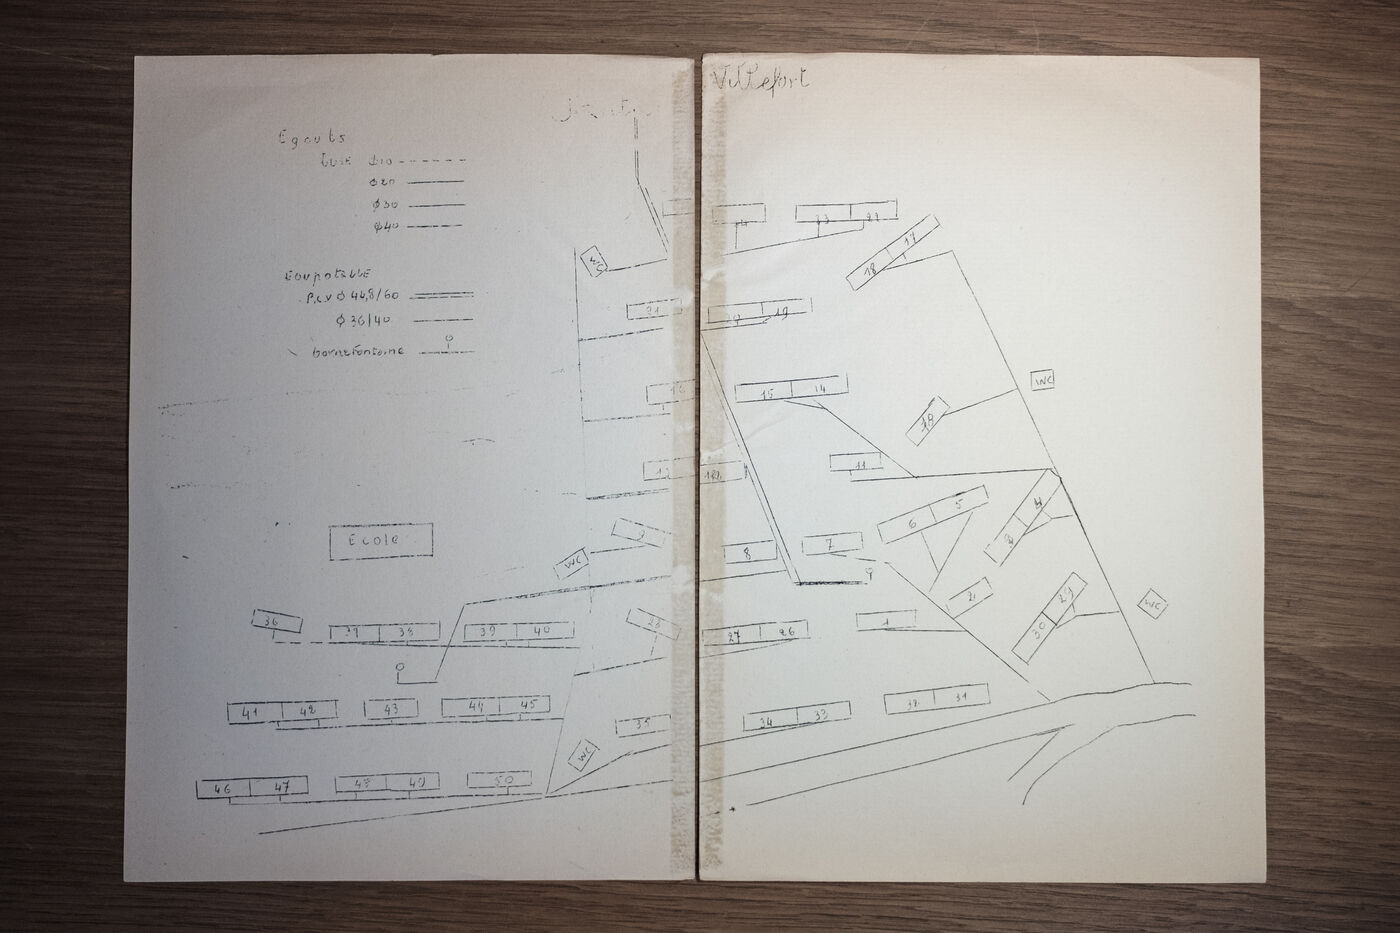 Villefort
Egouts
tube Ø10
Ø20
Ø30
Ø40
Eau potable
P.C.V Ø 44,8/60
Ø 36/40
bornefontaine
23 22
17
18
WC
21
19
15 14
WC
18
11
12
6 5
4
3
Ecole
WC
9
8
7
2
29
30
WC
36
38
39 40
28
27 26
1
41 42
43
44 45
35
34 33
32 31
WC
46 47
48 49
50